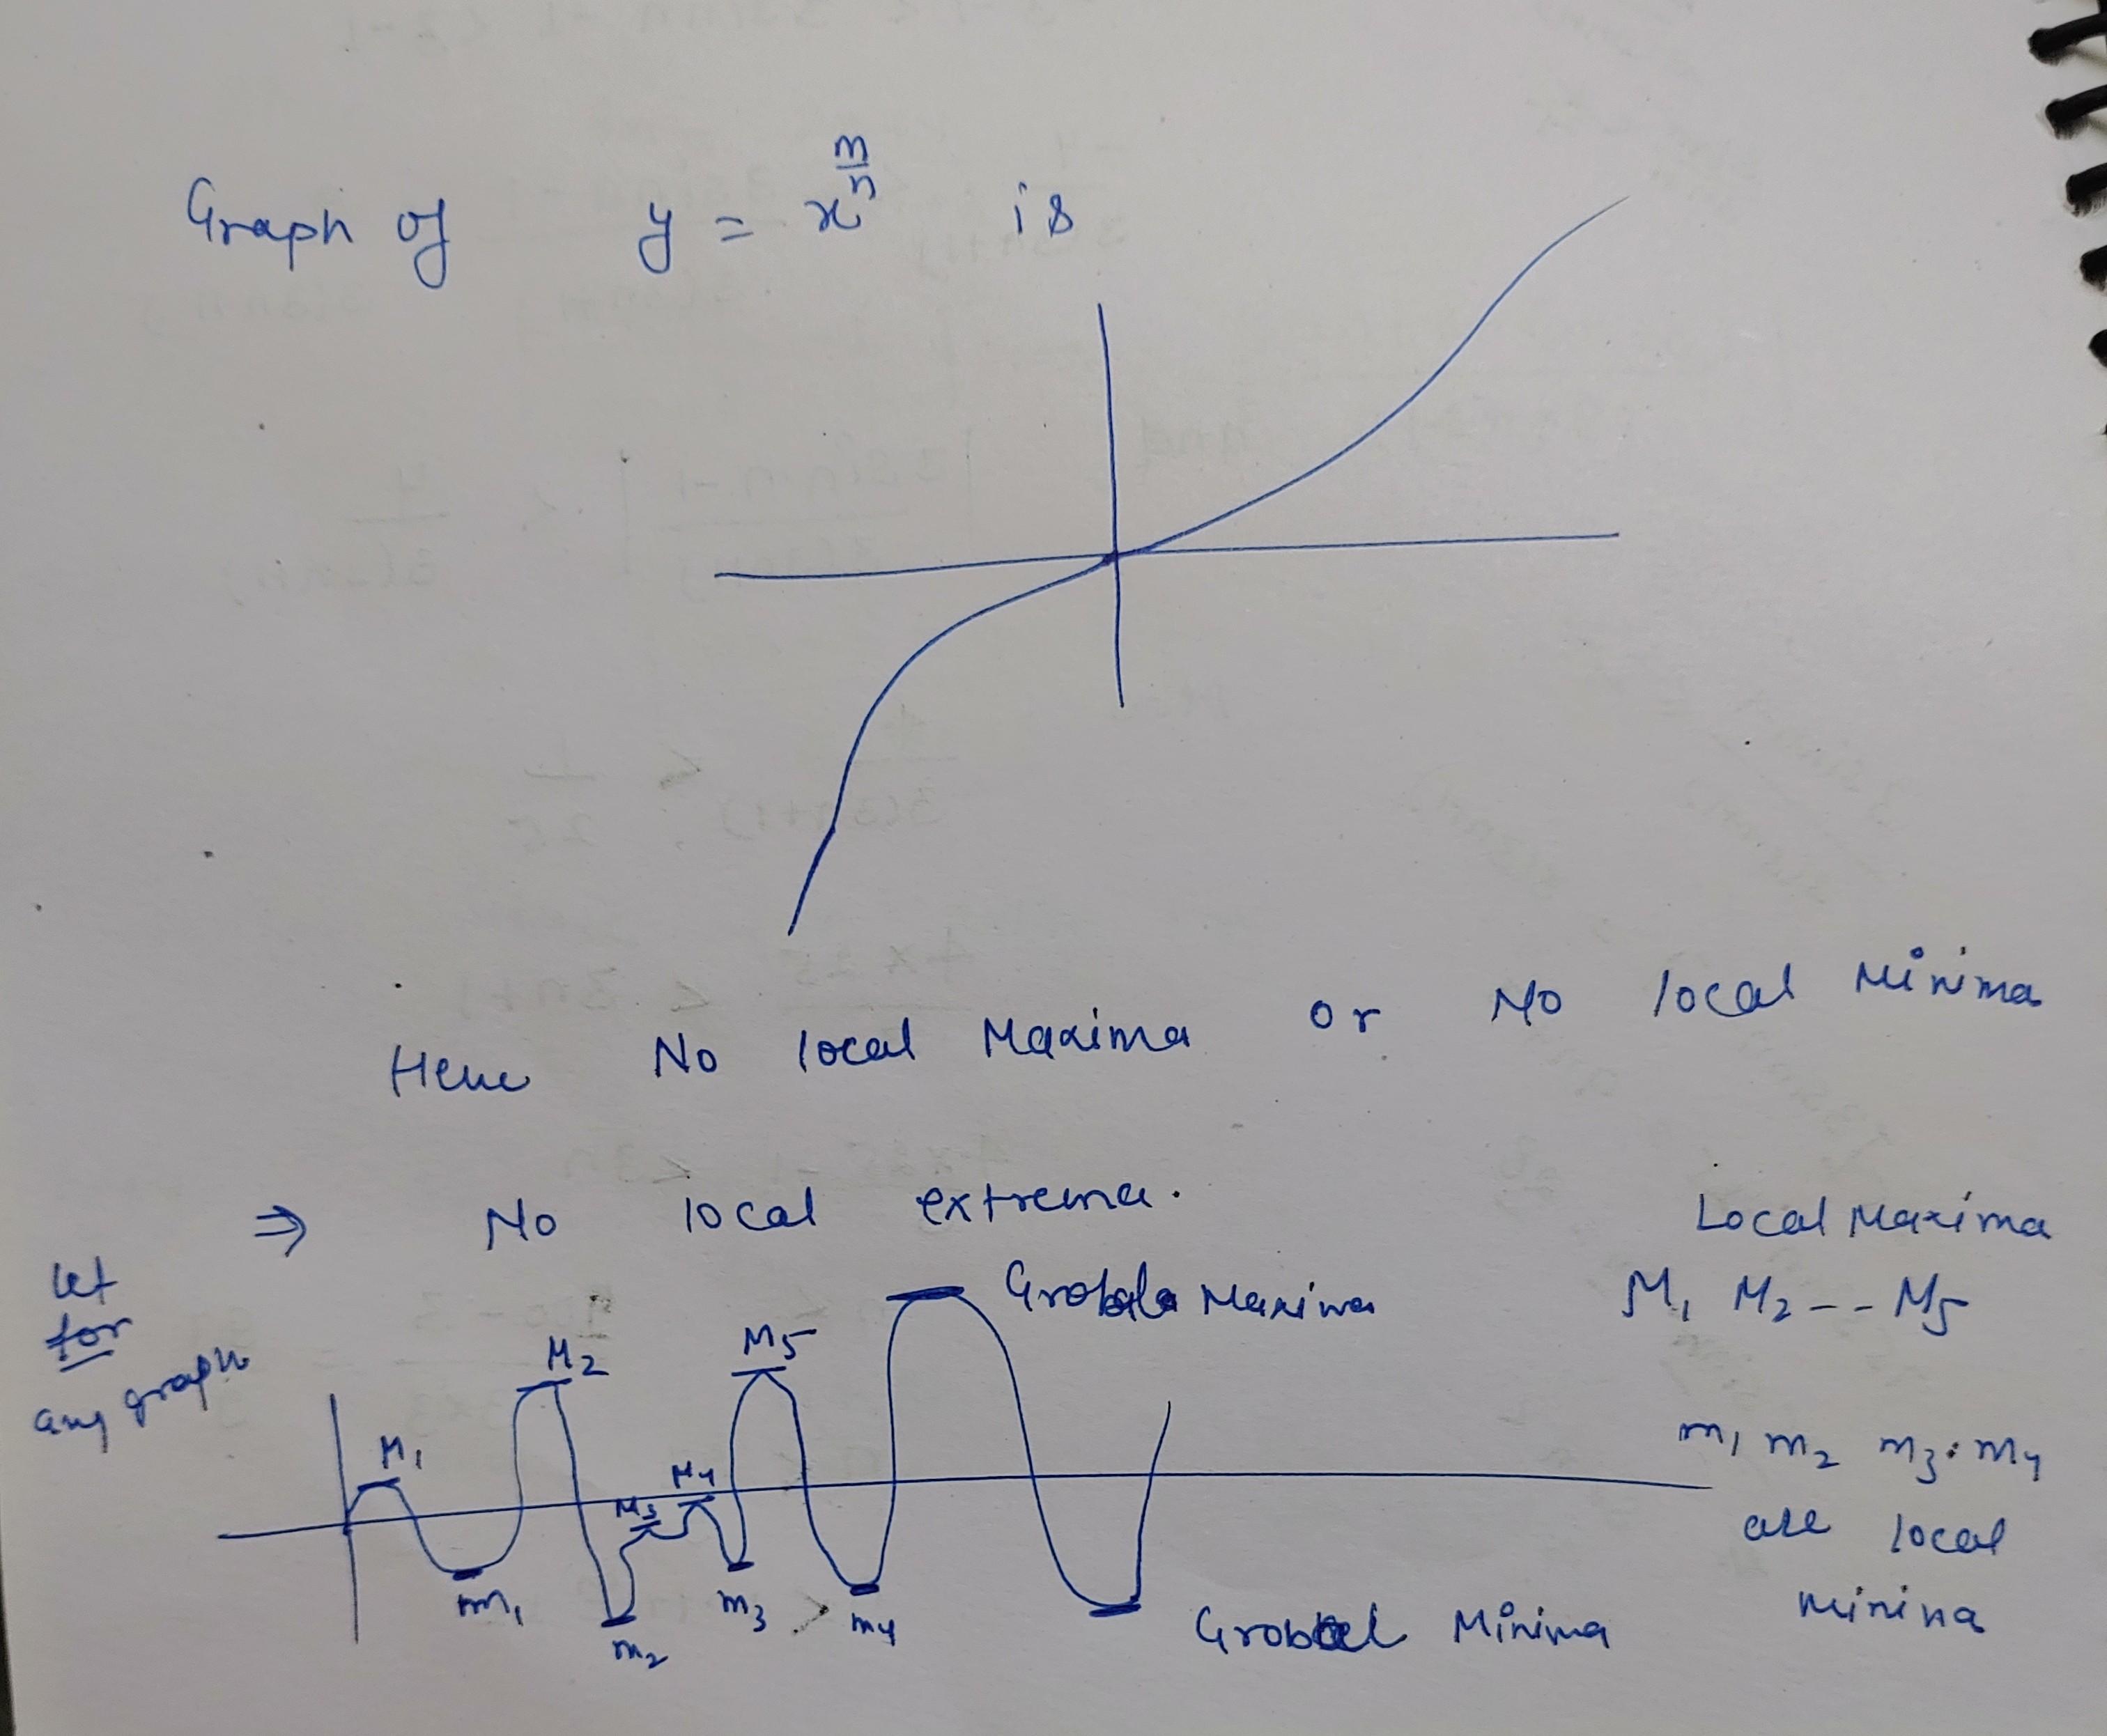 Graph of y = x^(m/n) is
Here No local Maxima or No local Minima
⇒ No local extrema.
let
for
any graph
Local Maxima
M1 M2 -- M5
Grobala Maxima
M1
M2
M3
M4
M5
m1
m2
m3
m4
m1 m2 m3. m4
are local
minina
Grobal Minima